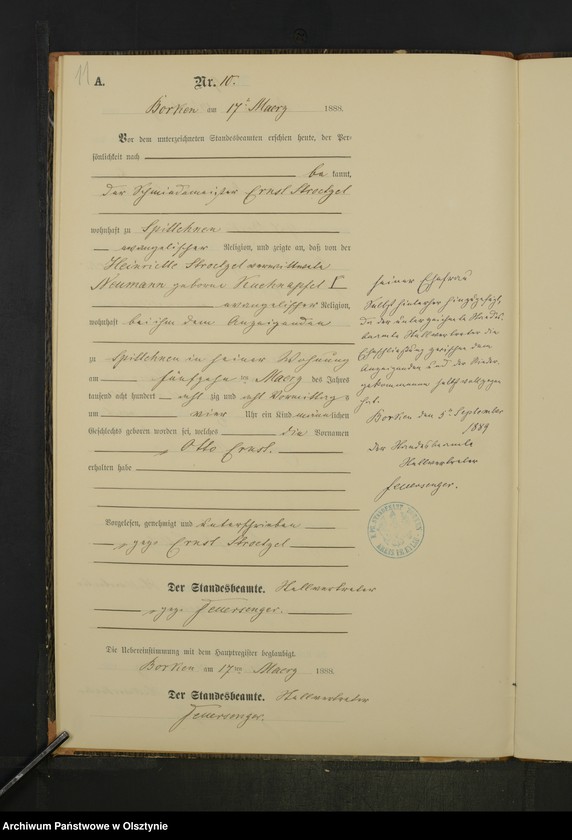 11
A.
Nr. 10.
Borken am 17ᵗ Maerz 1888.
Vor dem unterzeichneten Standesbeamten erschien heute, der Per-
sönlichkeit nach
be kannt,
der Schmiedemeister Ernst Stroetzel
wohnhaft zu Spittehnen
evangelischer Religion, und zeigte an, daß von der
Heinriette Stroetzel verwittwete
Neumann geborne Kuchnapfel Γ
evangelischer Religion,
wohnhaft bei ihm dem Anzeigenden
zu Spittehnen in seiner Wohnung
am fünfzehn ten Maerz des Jahres
tausend acht hundert acht zig und acht Vormittags
um vier Uhr ein Kind männlichen
Geschlechts geboren worden sei, welches die Vornamen
Otto Ernst.
erhalten habe
Vorgelesen, genehmigt und unterschrieben
gez. Ernst Stroetzel
Der Standesbeamte. Stellvertreter
gez. Feuersenger.
Die Uebereinstimmung mit dem Hauptregister beglaubigt.
Borken am 17ten Maerz 1888.
Der Standesbeamte. Stellvertreter
Feuersenger.
Γ seiner Ehefrau
Eheschließung zwischen dem
Anzeigenden und der Nieder-
gekommenen selbst vollzogen
hat.
Borken den 5ᵗ September
1889
Der Standesbeamte
Stellvertreter
Feuersenger.
Archiwum Państwowe w Olsztynie